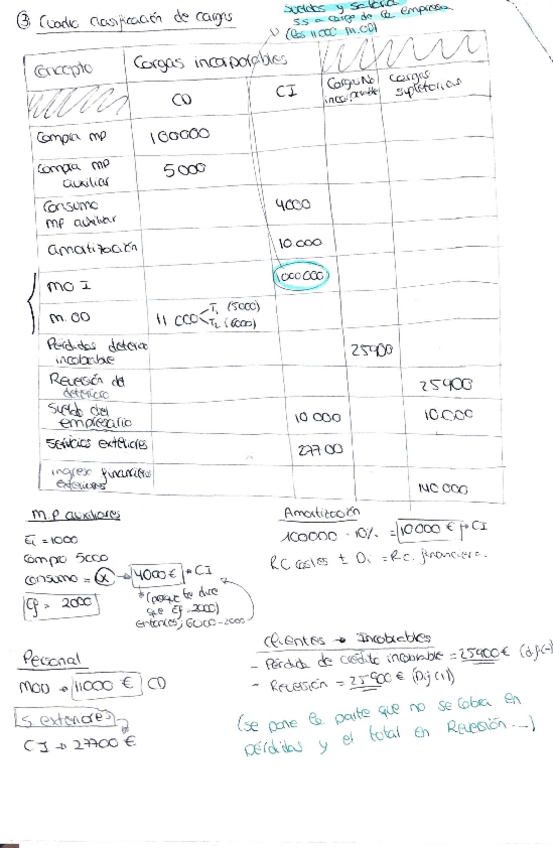 ③ Cuadro clasificación de cargas
sueldos y salarios
s.s a cargo de la empresa
(los 11000 m.OD)
Concepto Cargas incorporables Cargas No incorporable Cargas supletorias
CD CI
Compra mp 100000
Compra mp auxiliar 5000
Consumo mp auxiliar 4000
amortización 10.000
MO I 1000000
m.OD 11000 T1 (5000) T2 (6000)
Pérdidas deterioro incobrable 25900
Reversión del deterioro 25900
Sueldo del empresario 10 000 10.000
servicios exteriores 27700
ingreso financieros exteriores 140 000
M.P auxiliares
Ei = 1000
compra 5000
consumo = x → 4000 € → CI
*(porque te dice
que Ef = 2000)
entonces, 6000-2000
Ef = 2000
Amortización
100000 · 10% = 10000 € → CI
RC costes ± Di = RC. financiera.
Personal
MOD → 11000 € CD
S. exteriores
CI → 27700 €
Clientes → Incobrables
- Pérdida de crédito incobrable = 25900 €
- Reversión = 25900 €
(se pone la parte que no se cobra en
pérdidas y el total en Reversión...)